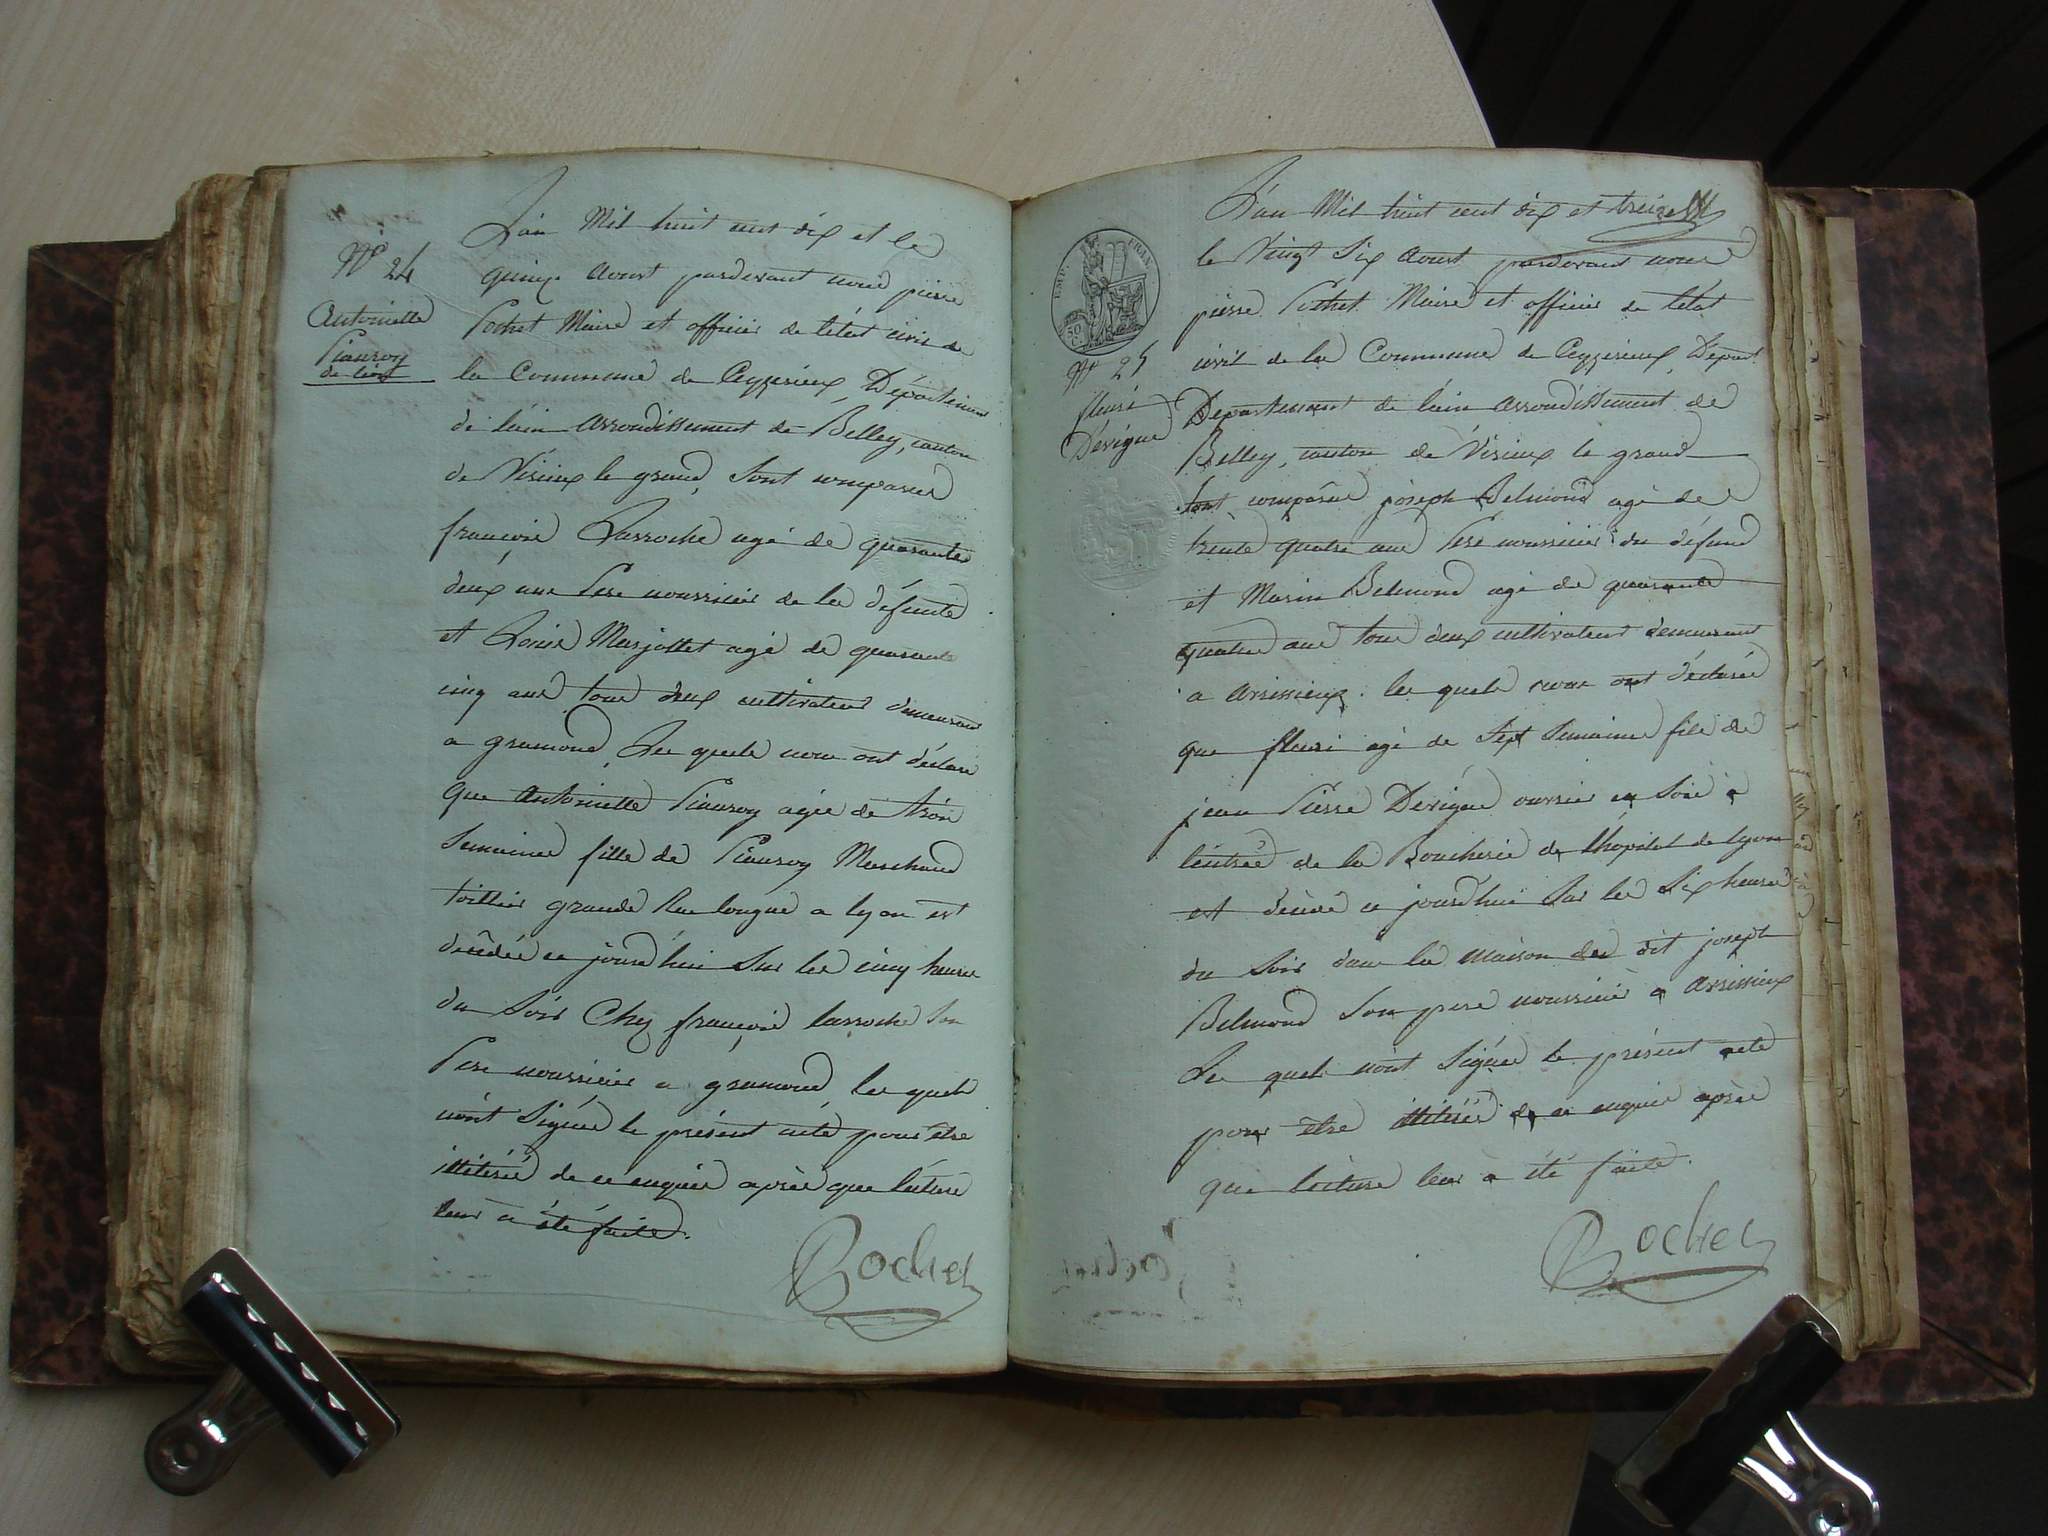 N° 24
Antoinette
Pianroy
de lion
L'an Mil huit cent dix et le
quinze Aoust pardevant nous pierre
Pochet Maire et officier de létat civil de
la Commune de Ceyzerieux, Département
de lain arrondissement de Belley, canton
de Virieux le grand, sont comparus
françois Larroche agé de quarante
deux ans Pere nourricier de la défunte
et Louis Marjollet agé de quarante
cinq ans tous deux cultivateurs demeurant
a gramond, Les quels nous ont déclaré
que Antoinette Pianroy agée de trois
semaines fille de Pianroy Marchand
toillier grande Rue longue a lyon est
décédée ce jourd'hui sur les cinq heures
du soir Chez françois larroche son
Pere nourricier a gramond, les quels
n'ont signée le présent acte pour être
illitérés de ce enquis après que lecture
leur a été faite.
Pochet
EMP. FRAN.
50 C.
N° 25
fleuri
Dérigue
L'an Mil huit cent dix et treize
le Vingt Six Aoust pardevant nous
pierre Pochet Maire et officier de létat
civil de la Commune de Ceyzerieux, Départ
Département de lain arrondissement de
Belley, canton de Virieux le grand
sont comparus joseph Belmond agé de
trente quatre ans Pere nourricier du défund
et Marin Belmond agé de quarante
quatre ans tous deux cultivateurs demeurant
a arissieux. les quels nous ont déclaré
que fleuri agé de sept semaines fils de
jean Pierre Dérigue ouvrier en soie à
l'entrée de la Boucherie de l'hopital de lyon
est décédé ce jourd'hui sur les six heures
du soir dans la maison du dit joseph
Belmond son pere nourricier à arissieux
Les quels n'ont signée le présent acte
pour être illitérés de ce enquis après
que lecture leur à été faite.
Pochet